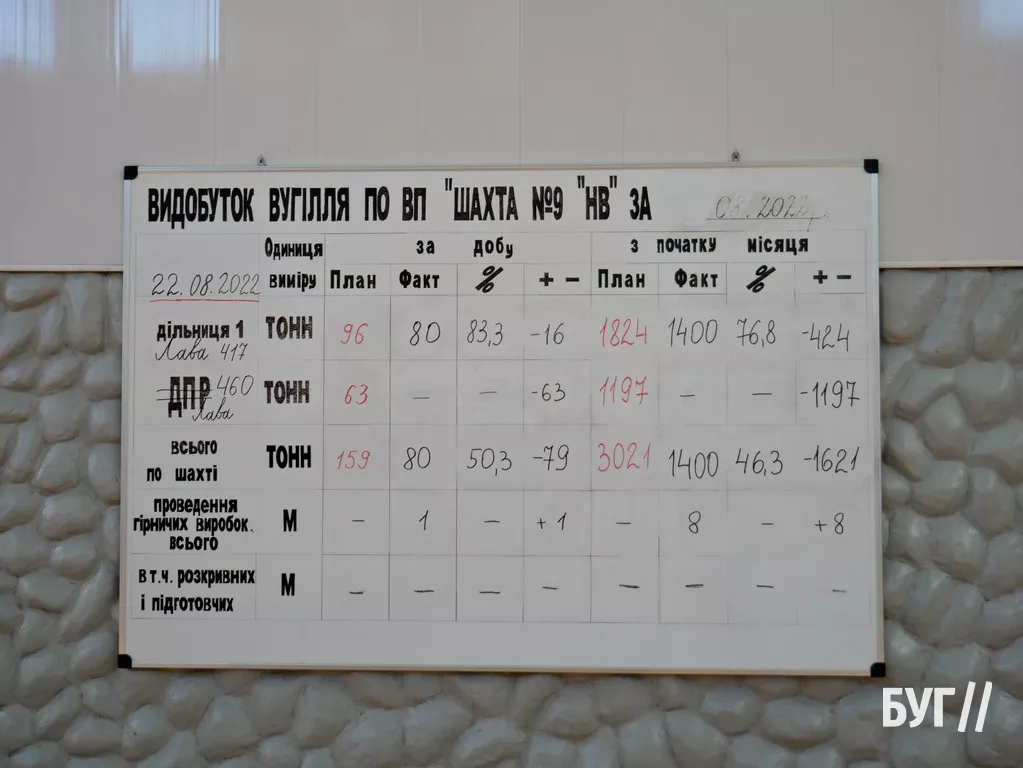 ВИДОБУТОК ВУГІЛЛЯ ПО ВП "ШАХТА №9 "НВ" ЗА 08.2022р.
Одиниця за добу з початку місяця
22.08.2022 виміру План Факт % + - План Факт % + -
дільниця 1 ТОНН 96 80 83,3 -16 1824 1400 76,8 -424
Лава 417
ДПР 460 ТОНН 63 — — -63 1197 — — -1197
Лава
всього
по шахті ТОНН 159 80 50,3 -79 3021 1400 46,3 -1621
проведення
гірничих виробок. М — 1 — +1 — 8 — +8
всього
в т.ч. розкривних М — — — — — — — —
і підготовчих
БУГ //